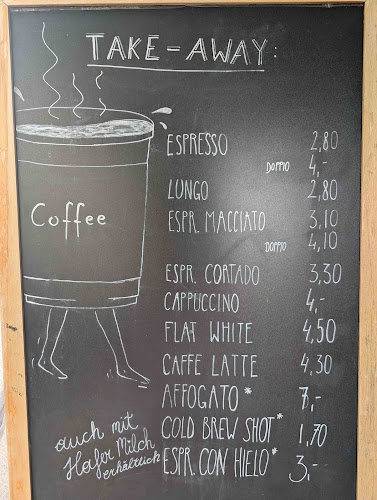 TAKE-AWAY:
Coffee
ESPRESSO 2,80
DOPPIO 4,-
LUNGO 2,80
ESPR. MACCIATO 3,10
DOPPIO 4,10
ESPR. CORTADO 3,30
CAPPUCCINO 4,-
FLAT WHITE 4,50
CAFFE LATTE 4,30
AFFOGATO*
COLD BREW SHOT* 1,70
ESPR. CON HIELO* 3,-
auch mit
Hafer Milch
erhältlich